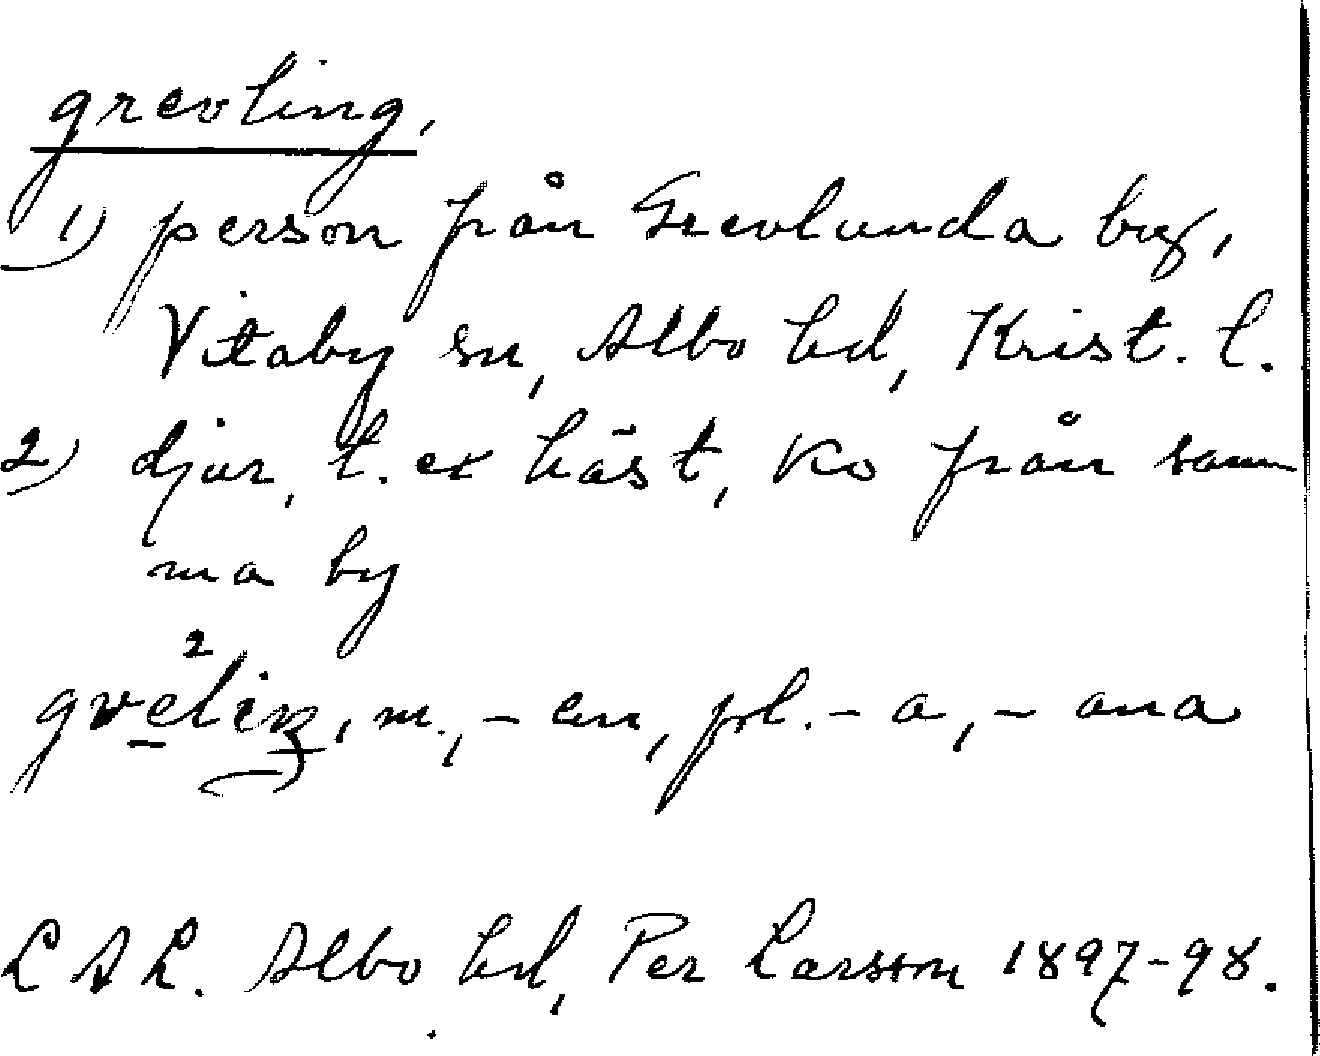 grevling,
1) person från Grevlunda by,
Vitaby sn, Albo hd, Krist. l.
2) djur, t. ex häst, ko från sam
ma by
m., - en, pl. - a, - ana
LAL. Albo hd, Per Larsson 1897-98.